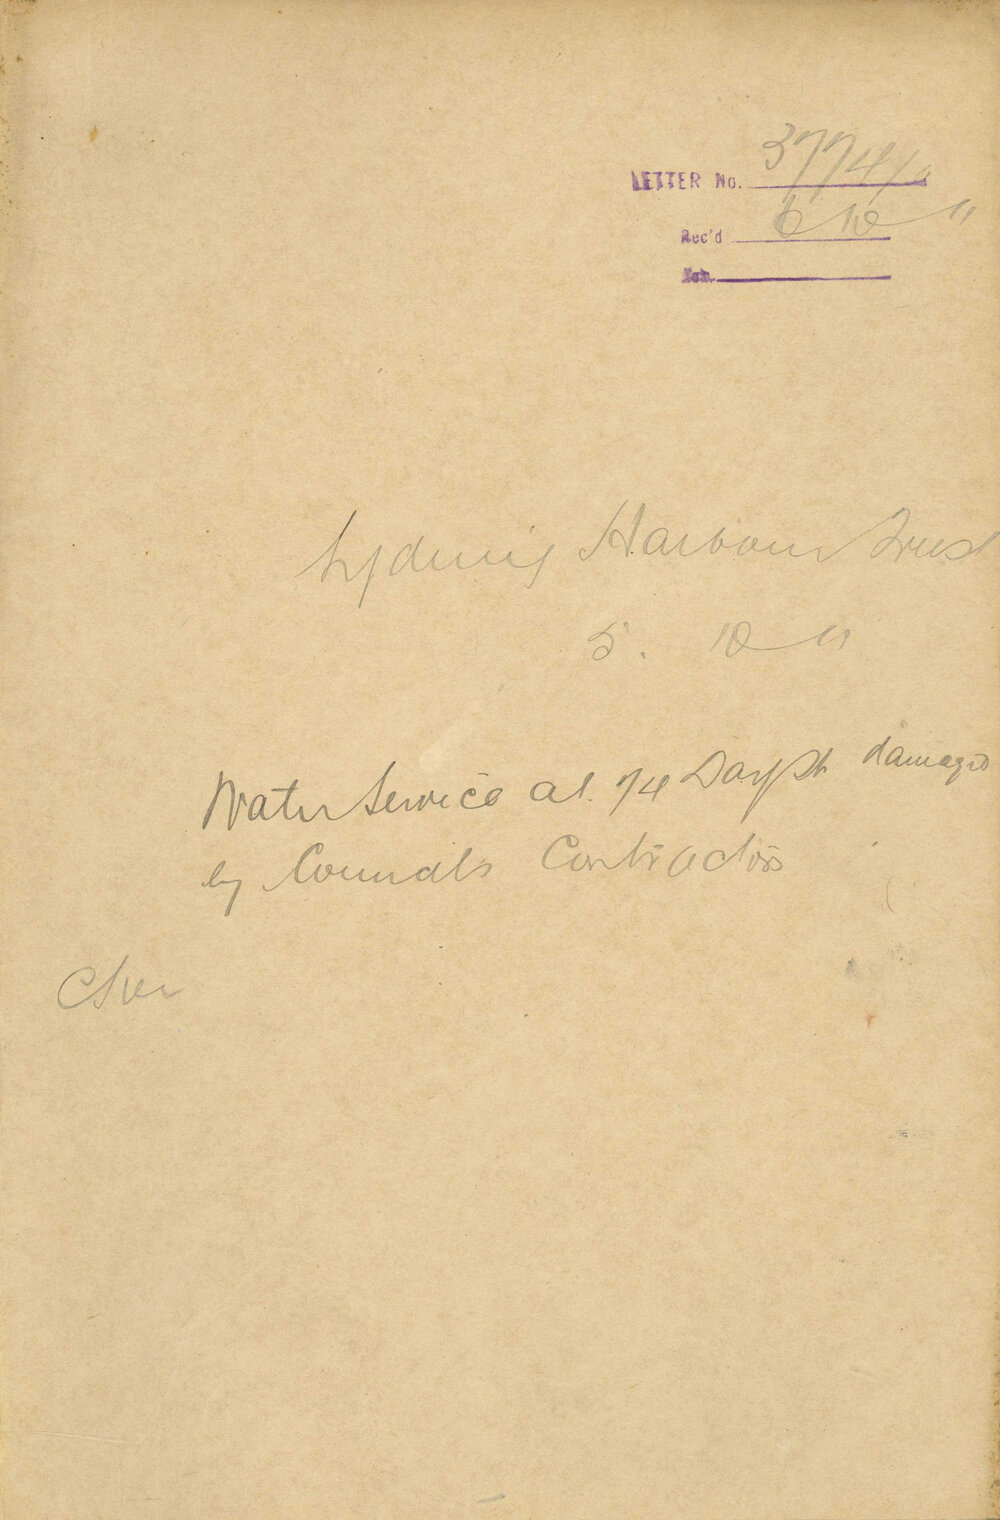 LETTER No. 3774/11
Rec'd 6 10 11
Sydney Harbour Trust
5. 10 11
Water Service at 74 Day St damaged
by Councils Contractors